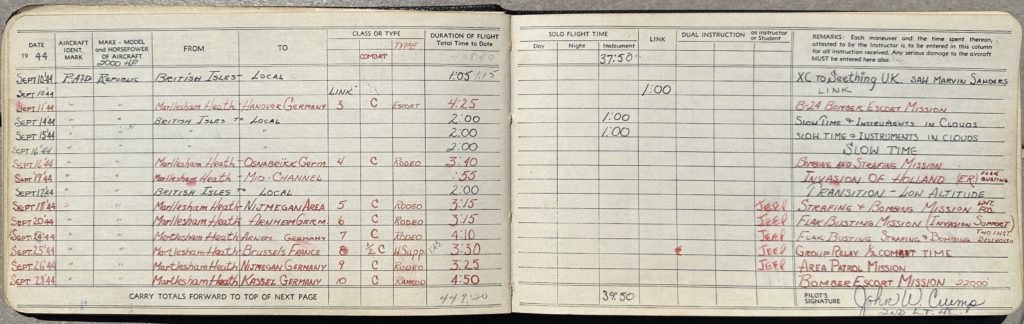 DATE 19 44
AIRCRAFT IDENT. MARK
MAKE - MODEL and HORSEPOWER OF AIRCRAFT 2000 HP
FROM TO
CLASS OR TYPE
COMBAT TYPE
DURATION OF FLIGHT Total Time to Date
SOLO FLIGHT TIME
Day Night Instrument
37:50
LINK
DUAL INSTRUCTION as Instructor or Student
REMARKS: Each maneuver and the time spent thereon, attested to by the Instructor is to be entered in this column for all instruction received. Any serious damage to the aircraft MUST be entered here also.
SEPT 10 '44 P-47D REPUBLIC BRITISH ISLES - LOCAL 1:05 1:15 XC TO SEETHING U.K. SAW MARVIN SANDERS
SEPT 10 '44 " " LINK 1:00 LINK
SEPT 11 '44 " " Martlesham Heath - HANOVER GERMANY 3 C ESCORT 4:25 B-24 BOMBER ESCORT MISSION
SEPT 14 '44 " " BRITISH ISLES - LOCAL 2:00 1:00 SLOW TIME & INSTRUMENTS IN CLOUDS
SEPT 15 '44 " " " " 2:00 1:00 SLOW TIME & INSTRUMENTS IN CLOUDS
SEPT 16 '44 " " " " 2:00 SLOW TIME
SEPT 16 '44 " " Martlesham Heath - OSNABRÜKK GERM. 4 C RODEO 3:40 BOMBING AND STRAFING MISSION
SEPT 17 '44 " " Martlesham Heath - MID-CHANNEL :55 INVASION OF HOLLAND (ER) FLAK BUSTING
SEPT 17 '44 " " BRITISH ISLES - LOCAL 2:00 TRANSITION - LOW ALTITUDE
SEPT 18 '44 " " Martlesham Heath - NIJMEGAN AREA 5 C RODEO 3:15 STRAFING & BOMBING MISSION
SEPT 20 '44 " " Martlesham Heath - ARNHEM GERM. 6 C RODEO 3:15 FLAK BUSTING MISSION (INVASION SUPPORT)
SEPT 24 '44 " " Martlesham Heath - ARNEM GERMANY 7 C RODEO 4:10 FLAK BUSTING STRAFING & BOMBING
SEPT 25 '44 " " Martlesham Heath - BRUSSELS FRANCE 8 ½ C W.Supp 1:45 3:30 GROUP RELAY ½ COMBAT TIME
SEPT 26 '44 " " Martlesham Heath - NIJMEGAN GERMANY 9 C RODEO 3:25 AREA PATROL MISSION
SEPT 28 '44 " " Martlesham Heath - KASSEL GERMANY 10 C RAMROD 4:50 BOMBER ESCORT MISSION 22000
CARRY TOTALS FORWARD TO TOP OF NEXT PAGE 449:20
39:50
PILOT'S SIGNATURE John W. Crump
2ND LT. A.C.